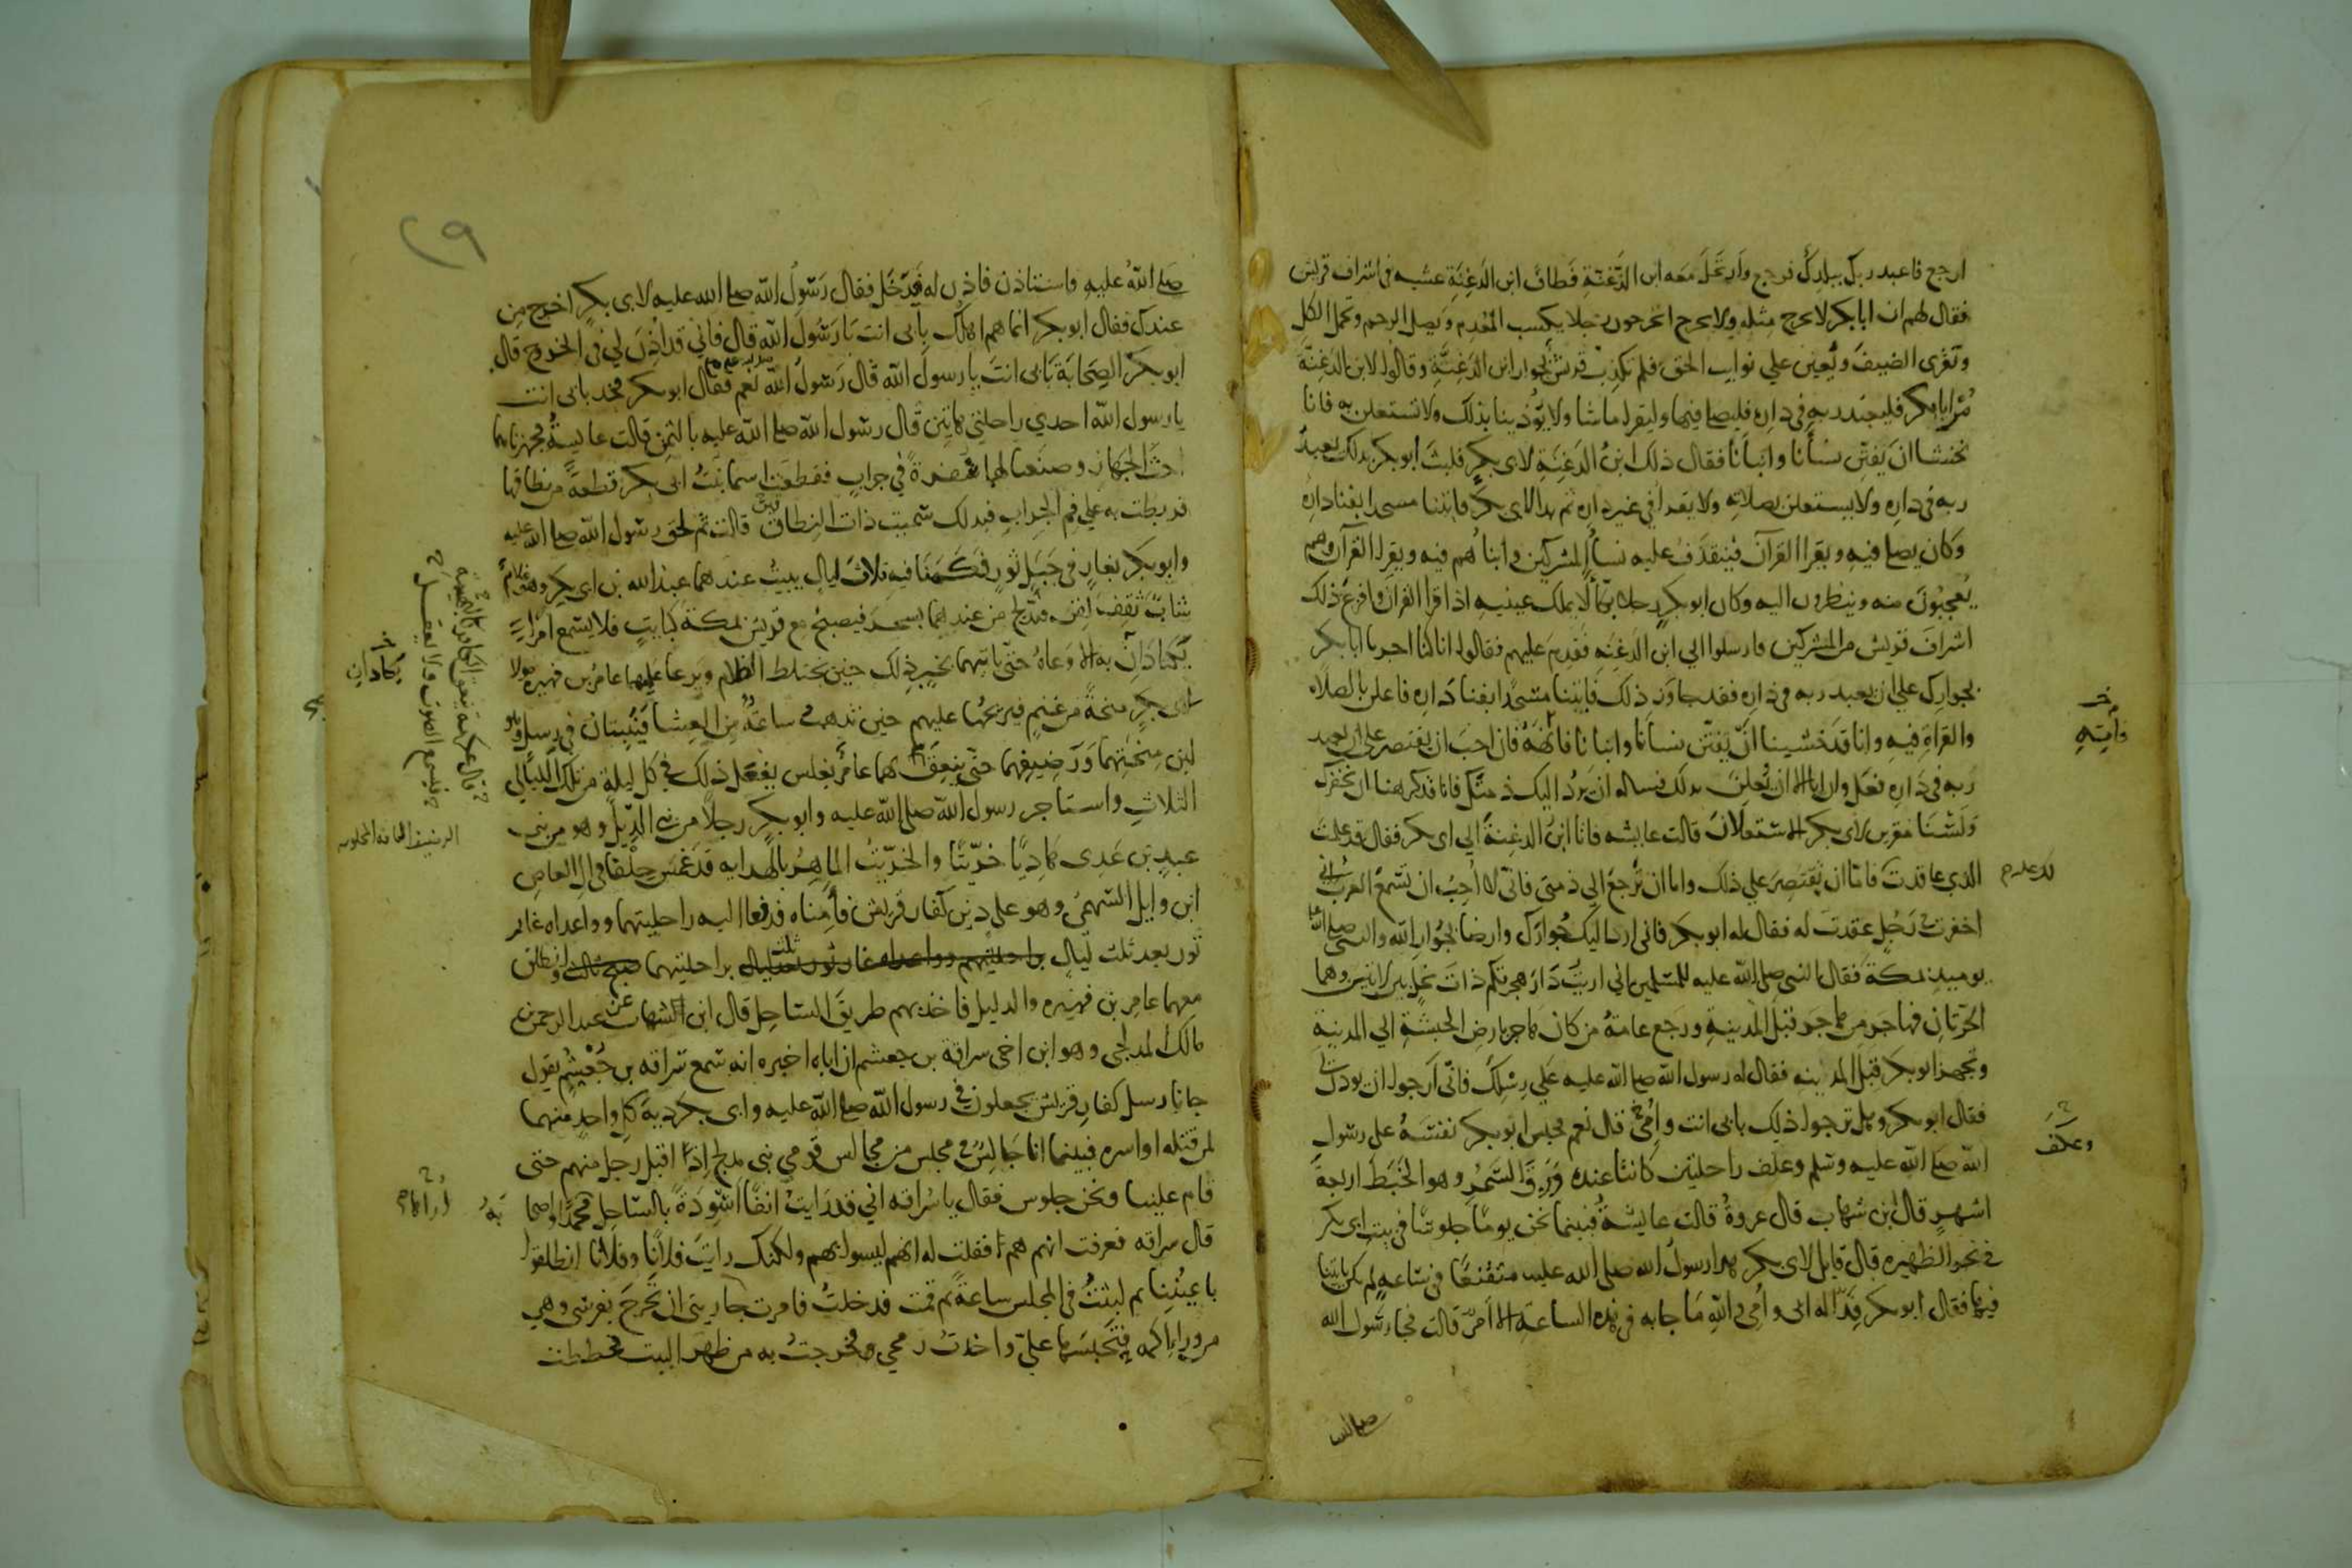 ارجع فاعبد ربك ببلدك فرجع وارتحل معه ابن الدغنة فطاف ابن الدغنة عشيه في اشراف قريش
فقال لهم ان ابا بكر لا يخرج مثله ولا يخرج اتخرجون رجلا يكسب المعدم ويصل الرحم وتحمل الكل
وتقرى الضيف ويعين علي نوايب الحق فلم تكذب قريش بجوار ابن الدغنة وقالوا لابن الدغنة
مر ابا بكر فليعبد ربه في داره فليصل فيها وليقرا ما شا ولا يؤذينا بذلك ولا تستعلن به فانا
نخشا ان يفتن نسأنا وابنأنا فقال ذلك ابن الدغنة لابي بكر فلبث ابو بكر بذلك يعبد
ربه في داره ولا يستعلن بصلاته ولا يقرا في غير داره ثم بدا لابي بكر فابتنا مسجدا بفنا داره
وكان يصلي فيه ويقرا القران فينقذف عليه نسأ المشركين وابناهم فيه ويقرا القران وهم
يعجبون منه وينظرون اليه وكان ابو بكر رجلا بكّأ لا يملك عينيه اذا قرا القران وافزع ذلك
اشراف قريش من المشركين فارسلوا الي ابن الدغنه فقدم عليهم فقالوا انا كنا اجرنا ابا بكر
بجوارك علي ان يعبد ربه في داره فقد جاوز ذلك فابتنا مسجدا بفنا داره فاعلن بالصلاه
والقراة فيه وانا قد خشينا ان يفتن نسانا وابنانا فانهه فان احب ان يقتصر علي ان يعبد
ربه في داره فعل وان ابا الا ان يعلن بذلك فسله ان يرد اليك ذمتك فانا قد كرهنا ان نخفرك
ولسنا مقرين لابي بكر الاستعلان قالت عايشه فاتا ابن الدغنة الي ابي بكر فقال قد علمت
الذي عاقدت فاما ان تقتصر علي ذلك واما ان ترجع الي ذمتي فاني لا احب ان تسمع العرب اني
اخفرت في رجل عقدت له فقال له ابو بكر فاني ارد اليك جوارك وارضا بجوار الله والنبي صلى الله
يوميذ بمكة فقال النبي صلى الله عليه للمسلمين اني اريت دار هجرتكم ذات نخل بين لابتين وهما
الحرتان فهاجر من هاجر قبل المدينة ورجع عامة من كان هاجر بارض الحبشة الي المدينة
وتجهز ابو بكر قبل المدينه فقال له رسول الله صلى الله عليه علي رسلك فاني ارجو ان يوذن لي
فقال ابو بكر وهل ترجوا ذلك بابي انت وامي قال نعم فحبس ابو بكر نفسه على رسول
الله صلى الله عليه وسلم وعلف راحلتين كانتا عنده ورق السمر وهو الخبط اربعة
اشهر قال ابن شهاب قال عروة قالت عايشة فبينما نحن يوما جلوسا في بيت ابي بكر
في نحر الظهيره قال قايل لابي بكر هذا رسول الله صلى الله عليه متقنعا في ساعه لم يكن ياتينا
فيها فقال ابو بكر فدا له ابي وامي والله ما جا به في هذه الساعة الا امر قالت فجا رسول الله
وابتنى
قد علم
وعلف
صلى الله
٢٩
صلى الله عليه فاستاذن فاذن له فدخل فقال رسول الله صلى الله عليه لابي بكر اخرج من
عندك فقال ابو بكر انما هم اهلك بابي انت يا رسول الله قال فاني قد اذن لي في الخروج قال
ابو بكر الصحابة بابي انت يا رسول الله قال رسول الله نعم فقال ابو بكر فخذ بابي انت
يا رسول الله احدي راحلتي هاتين قال رسول الله صلى الله عليه بالثمن قالت عايشة فجهزناهما
احث الجهاز وصنعنا لهما سفرة في جراب فقطعت اسما بنت ابي بكر قطعة من نطاقها
فربطت به علي فم الجراب فبذلك سميت ذات النطاقين قالت ثم لحق رسول الله صلى الله عليه
وابو بكر بغار في جبل ثور فكمنا فيه ثلاث ليال يبيت عندهما عبد الله بن ابي بكر وهو غلام
شاب ثقف لقن فيدلج من عندهما بسحر فيصبح مع قريش بمكة كبايت فلا يسمع امرا
يكتادان به الا وعاه حتى ياتيهما بخبر ذلك حين يختلط الظلام ويرعا عليهما عامر بن فهيره مولا
ابي بكر منحة من غنم فيريحها عليهم حين تذهب ساعة من العشا فيبيتان في رسل وهو
لبن منحتهما ورضيفهما حتى ينعق بهما عامر بغلس يفعل ذلك في كل ليلة من تلك الليالي
الثلاث واستاجر رسول الله صلى الله عليه وابو بكر رجلا من بني الديل وهو من بني
عبد بن عدي هاديا خرّيتا والخرّيت الماهر بالهدايه قد غمس حلفا في ال العاص
ابن وايل السهمي وهو على دين كفار قريش فأمناه فدفعا اليه راحلتيهما وواعداه غار
ثور بعد ثلث ليال براحلتيهم وواعداه غار ثور بعد ثلث ليال براحلتيهما صبح ثالث وانطلق
معهما عامر بن فهيره والدليل فاخذ بهم طريق الساحل قال ابن الشهاب عن عبد الرحمن بن
مالك المدلجي وهو ابن اخي سراقة بن جعشم ان اباه اخبره انه سمع سراقه بن جعشم يقول
جانا رسل كفار قريش يجعلون في رسول الله صلى الله عليه وابي بكر دية كل واحد منهما
لمن قتله او اسره فبينما انا جالس في مجلس من مجالس قومي بني مدلج اذ اقبل رجل منهم حتى
قام علينا ونحن جلوس فقال يا سراقه اني قد رايت انفا اسودة بالساحل محمدا واصحا به
قال سراقه فعرفت انهم هم فقلت له انهم ليسوا بهم ولكنك رايت فلانا وفلانا انطلقوا
باعيننا ثم لبثت في المجلس ساعة ثم قمت فدخلت فامرت جاريتي ان تخرج بفرسي وهي
من ورا اكمه فتحبسها عليّ واخذت رمحي فخرجت به من ظهر البيت فخططت
يكادان
الرضيف الناقة المحلوبه
اراها